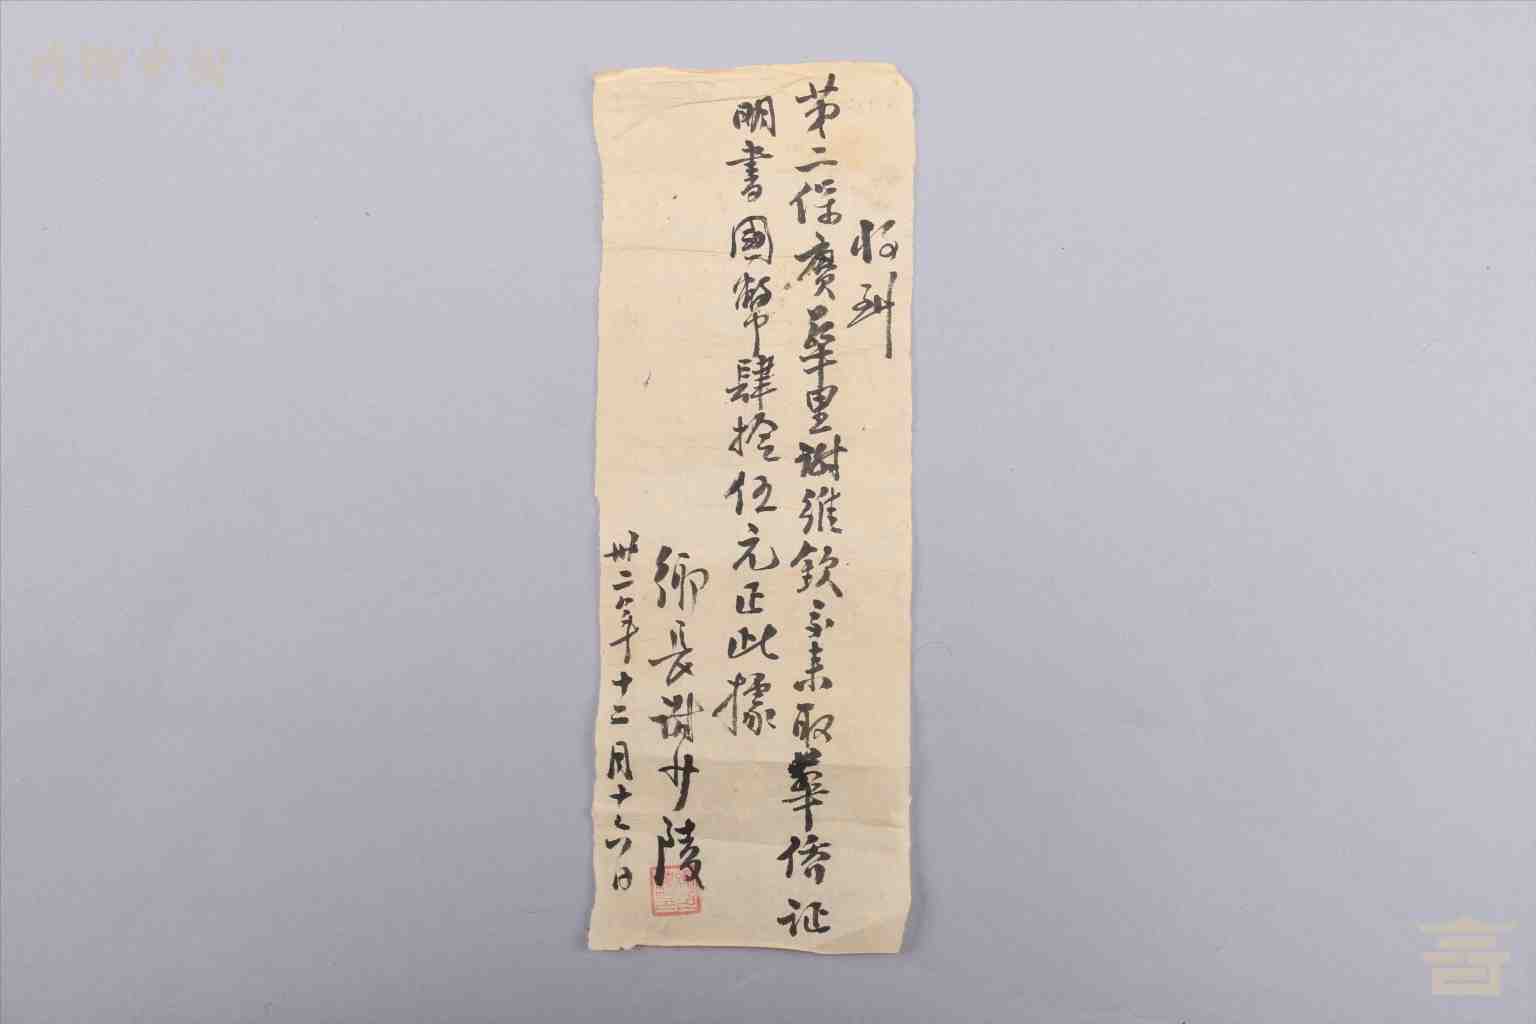 收到
第二保廣華里謝維欽交來取華僑证
明書國幣肆拾伍元正此據
鄉長謝少陵
卅二年十二月十六日